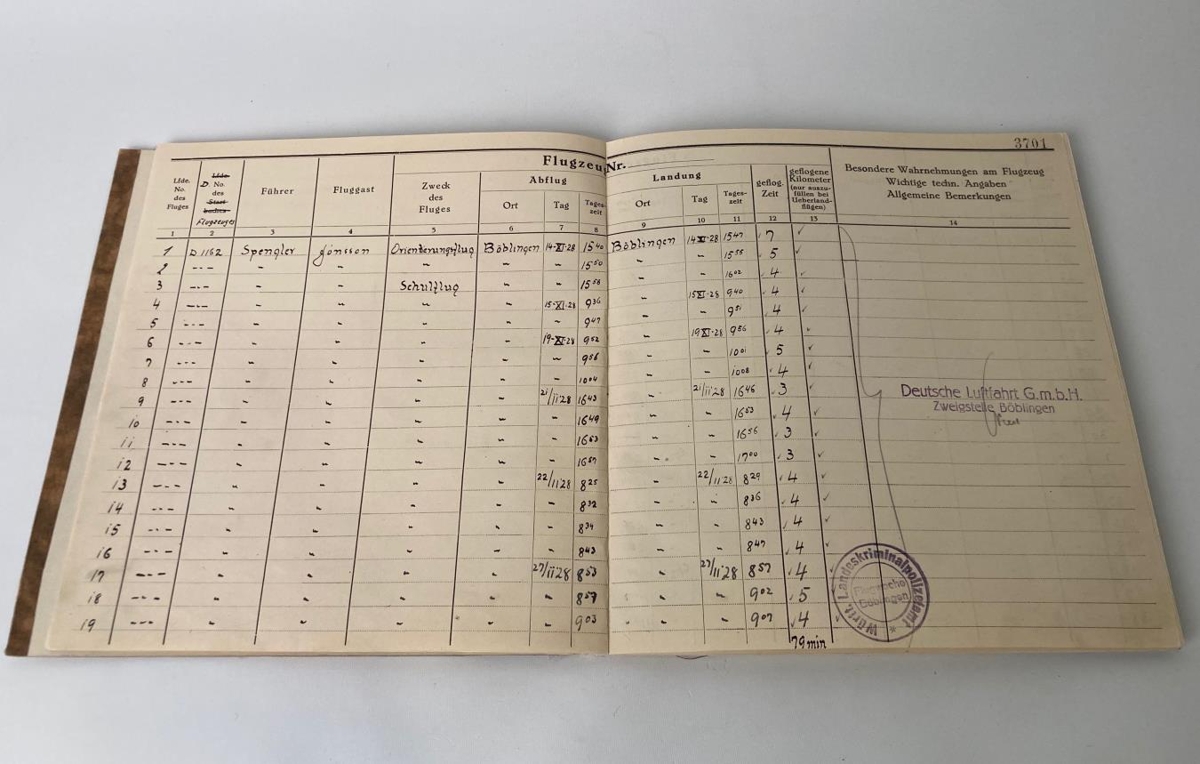 3701
Flugzeug Nr.
Lfde. No. des Fluges
Lfde. D. No. des Start buches Flugzeuges
Führer
Fluggast
Zweck des Fluges
Abflug
Ort
Tag
Tageszeit
Landung
Ort
Tag
Tageszeit
geflog. Zeit
geflogene Kilometer (nur auszufüllen bei Ueberlandflügen)
Besondere Wahrnehmungen am Flugzeug
Wichtige techn. Angaben
Allgemeine Bemerkungen
1 2 3 4 5 6 7 8 9 10 11 12 13 14
1 D 1162 Spengler Jónsson Orientierungsflug Böblingen 14·XI·28 15 40 Böblingen 14·XI·28 15 47 7
2 -·- " " " " 15 50 " " 15 55 5
3 -·- " " Schulflug " 15 58 " " 16 02 4
4 -·- " " " " 15·XI·28 9 36 " 15·XI·28 9 40 4
5 -·- " " " " " 9 47 " " 9 51 4
6 -·- " " " " 19·XI·28 9 52 " 19·XI·28 9 56 4
7 -·- " " " " " 9 56 " " 10 01 5
8 -·- " " " " " 10 04 " " 10 08 4
9 -·- " " " " 21/11 28 16 43 " 21/11 28 16 46 3
10 -·- " " " " " 16 49 " " 16 53 4
11 -·- " " " " " 16 53 " " 16 56 3
12 -·- " " " " " 16 57 " " 17 00 3
13 -·- " " " " 22/11 28 8 25 " 22/11 28 8 29 4
14 -·- " " " " " 8 32 " " 8 36 4
15 -·- " " " " " 8 39 " " 8 43 4
16 -·- " " " " " 8 43 " " 8 47 4
17 -·- " " " " 27/11 28 8 53 " 27/11 28 8 57 4
18 -·- " " " " " 8 57 " " 9 02 5
19 -·- " " " " " 9 03 " " 9 07 4
79 min
Deutsche Luftfahrt G.m.b.H.
Zweigstelle Böblingen
Württ. Landeskriminalpolizeiamt
Böblingen